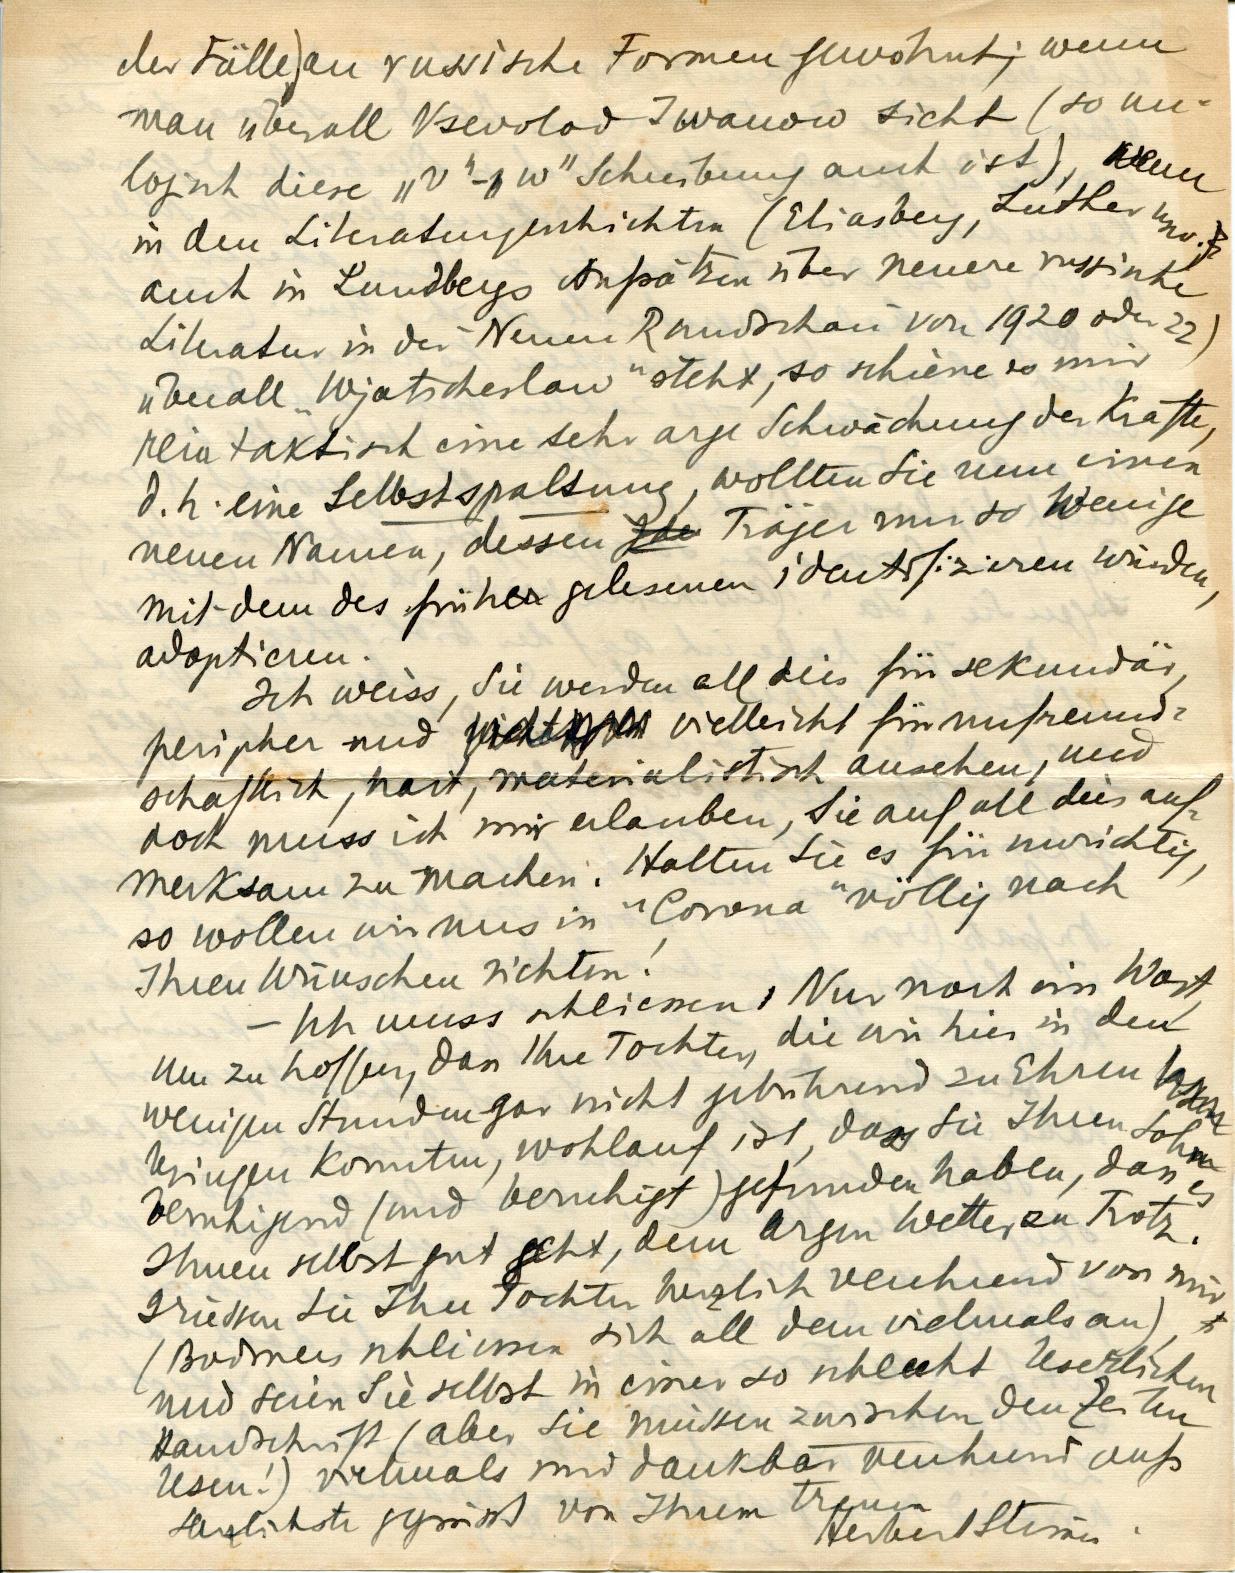 der Fälle) an russische Formen gewohnt; wenn
man überall Vsevolod Iwanow sieht (so un-
logisch diese „V“-„w“ Schreibung auch ist), wenn
in den Literaturgeschichten (Eliasberg, Luther usw.
auch in Lundbergs Aufsätzen über neuere russische
Literatur in der Neuen Rundschau von 1920 oder 22)
überall „Wjatscheslaw“ steht, so schiene es mir
rein taktisch eine sehr arge Schwächung der Kräfte,
d.h. eine Selbstspaltung, wollten Sie nun einen
neuen Namen, dessen Träger nur so Wenige
mit dem des früher gelesenen identifizieren würden,
adoptieren.
Ich weiss, Sie werden all dies für sekundär,
peripher und vielleicht für unfreund-
schaftlich, hart, materialistisch ansehen, und
doch muss ich mir erlauben, Sie auf all dies auf-
merksam zu machen. Halten Sie es für unrichtig,
so wollen wir uns in "Corona" völlig nach
Ihren Wünschen richten!
— Ich muss schliessen! Nur noch ein Wort,
um zu hoffen, dass Ihre Tochter, die wir hier in den
wenigen Stunden gar nicht gebührend zu Ehren
bringen konnten, wohlauf ist, dass Sie Ihren Sohn
beruhigend (und beruhigt) gefunden haben, dass es
Ihnen selbst gut geht, dem argen Wetter zu Trotz.
Grüssen Sie Ihre Tochter herzlich verehrend von mir
(Bodmers schliessen sich all dem vielmals an),
und seien Sie selbst in einer so schlecht leserlichen
Handschrift (aber Sie müssen zwischen den Zeilen
lesen!) vielmals und dankbar verehrend aufs
herzlichste gegrüsst von Ihrem treuen
Herbert Steiner.